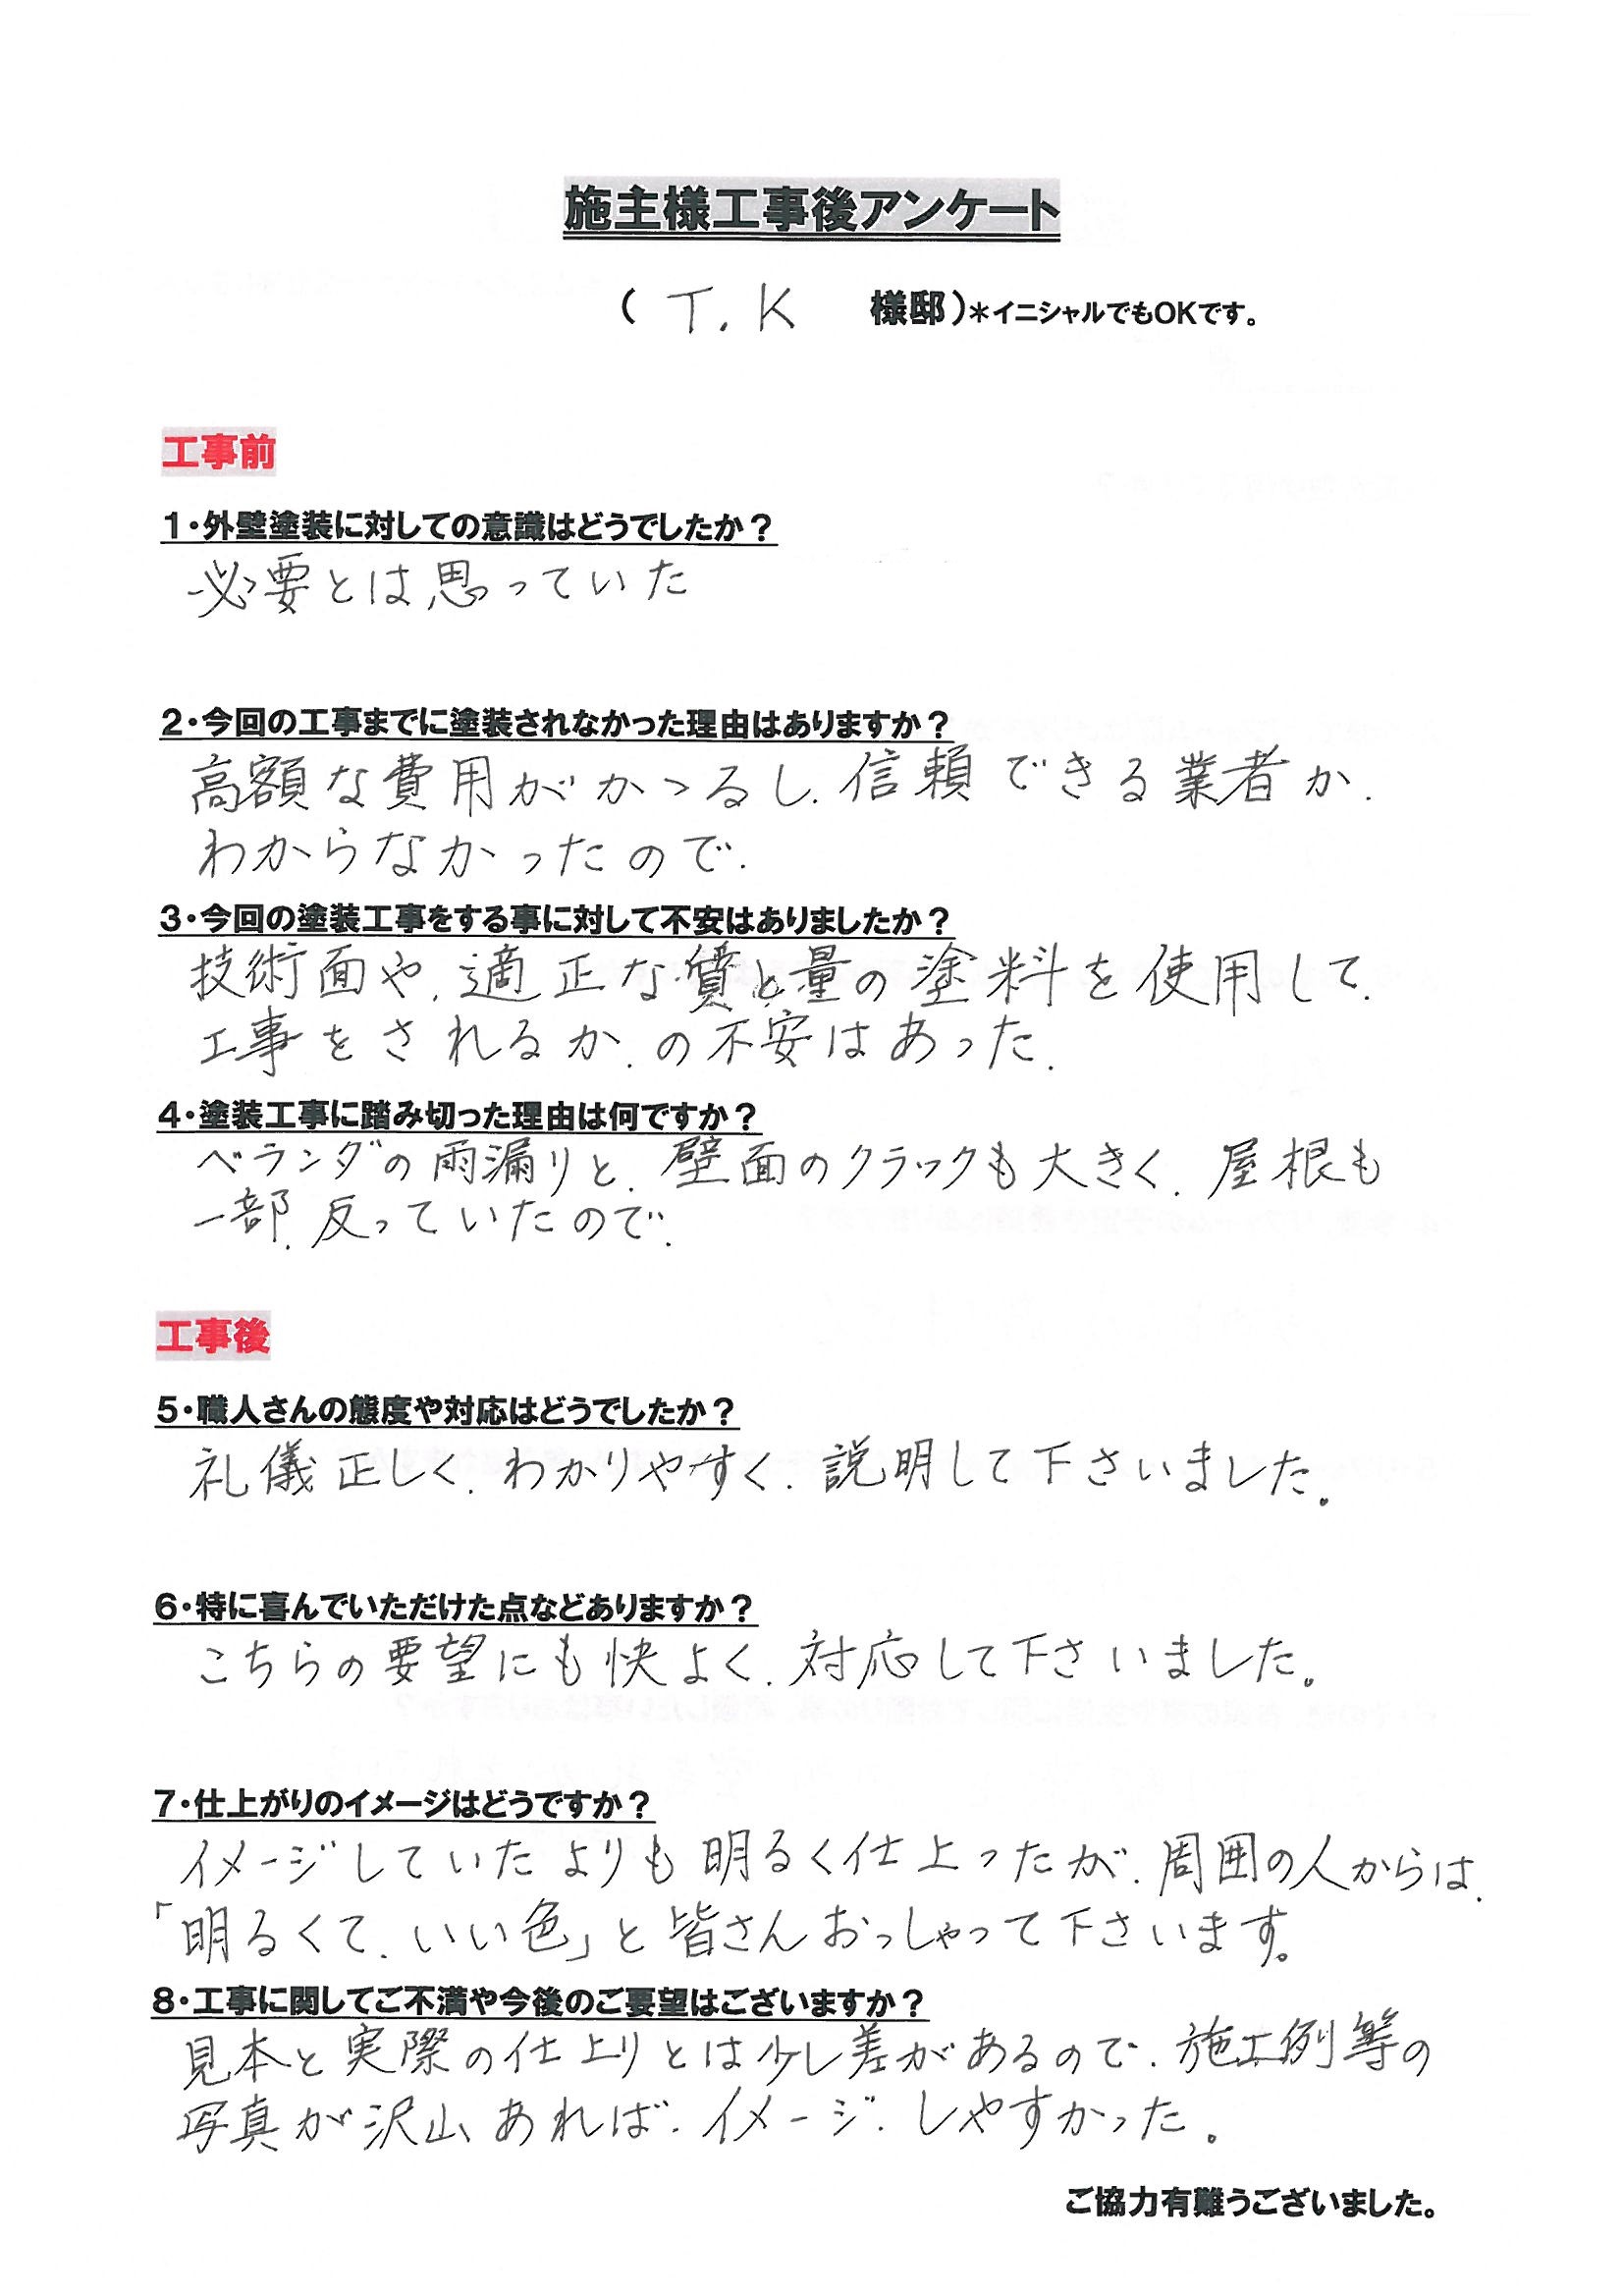 施主様工事後アンケート
( T.K 様邸)*イニシャルでもOKです。
工事前
1・外壁塗装に対しての意識はどうでしたか?
必要とは思っていた
2・今回の工事までに塗装されなかった理由はありますか?
高額な費用がかゝるし、信頼できる業者か、
わからなかったので、
3・今回の塗装工事をする事に対して不安はありましたか?
技術面や、適正な質と量の塗料を使用して、
工事をされるか、の不安はあった、
4・塗装工事に踏み切った理由は何ですか?
ベランダの雨漏りと、壁面のクラックも大きく、屋根も
一部、反っていたので、
工事後
5・職人さんの態度や対応はどうでしたか?
礼儀正しく、わかりやすく、説明して下さいました。
6・特に喜んでいただけた点などありますか?
こちらの要望にも快よく、対応して下さいました。
7・仕上がりのイメージはどうですか?
イメージしていたよりも明るく仕上ったが、周囲の人からは、
「明るくて、いい色」と皆さんおっしゃって下さいます。
8・工事に関してご不満や今後のご要望はございますか?
見本と実際の仕上りとは少し差があるので、施工例等の
写真が沢山あれば、イメージ、しやすかった。
ご協力有難うございました。